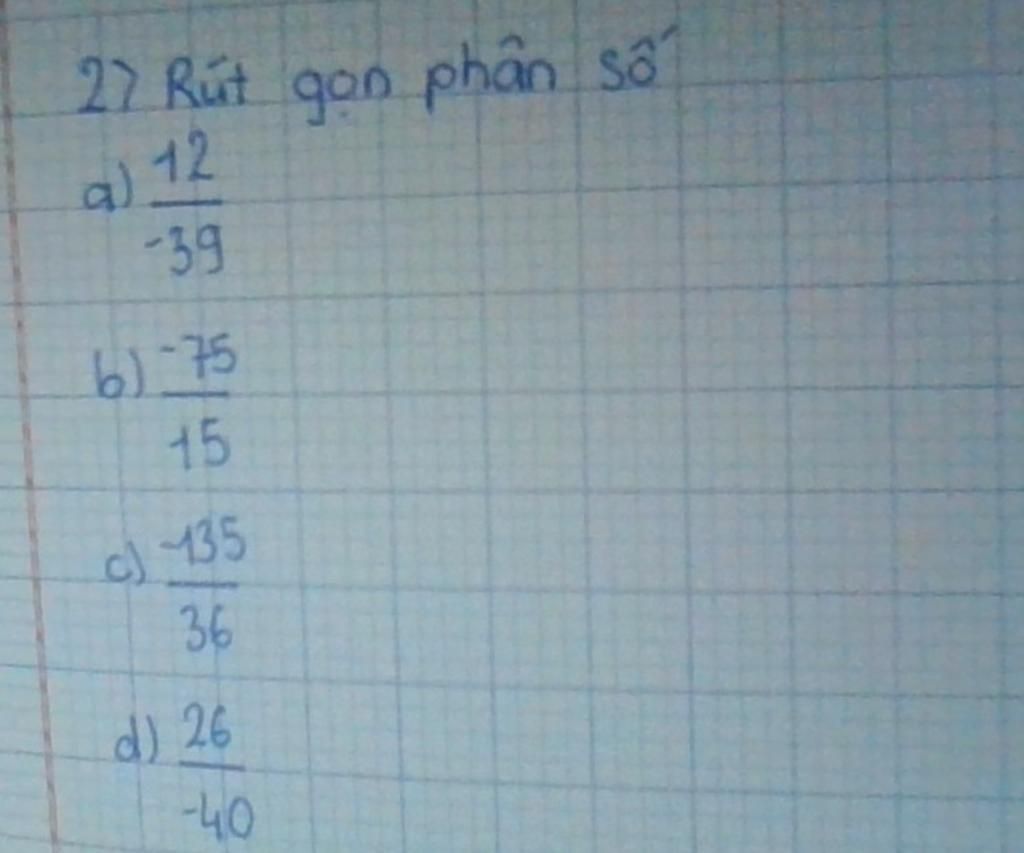 2) Rút gọn phân số
a) 12
-39
b) -75
15
c) -135
36
d) 26
-40